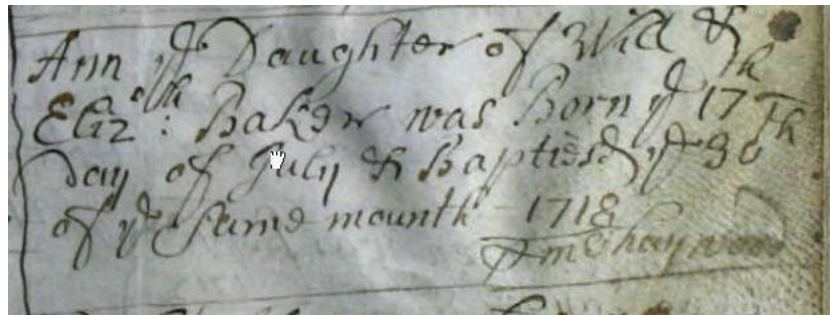 Ann yᵉ Daughter of Will &
Elizᵃᵗʰ: Baker was Born yᵉ 17ᵗʰ
Day of July & Baptisd yᵉ 30ᵗʰ
of yᵉ same mounth 1718